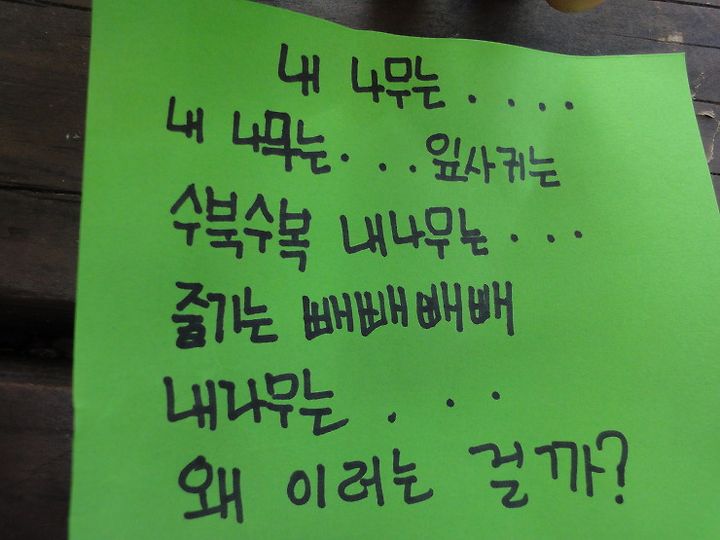 내 나무는 . . . .
내 나무는 . . . 잎사귀는
수북수복 내나무는 . . .
줄기는 빼빼빼빼
내나무는 . . .
왜 이러는 걸까?